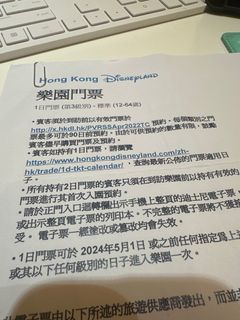 Hong Kong Disneyland
樂園門票
1日門票 (第3級別) - 標準 (12-64歲)
• 賓客須於到訪前以有效門票於
http://x.hkdl.hk/PVRSSApr2022TC 預約。每個類別之門
票最多可於90日前預約。由於可供預約的數量有限，鼓勵
賓客儘早購買門票及預約。
• 賓客如持有1日門票，請瀏覽
https://www.hongkongdisneyland.com/zh-
hk/trade/1d-tkt-calendar/ 查詢最新公佈的門票適用日
子。
• 所有持有2日門票的賓客只須在到訪樂園前以持有有效的
門票進行其首次入園預約。
• 請於正門入口迴轉欄出示手機上整頁的迪士尼電子票，
或出示整頁電子票的列印本。不完整的電子票將不獲接
受。電子票一經塗改或篡改均會失效。
• 1日門票可於 2024年5月1日 或之前任何指定爲上
或其以下任何級別的日子進入樂園一次。
電子票由以下所述的旅遊供應商發出，而並